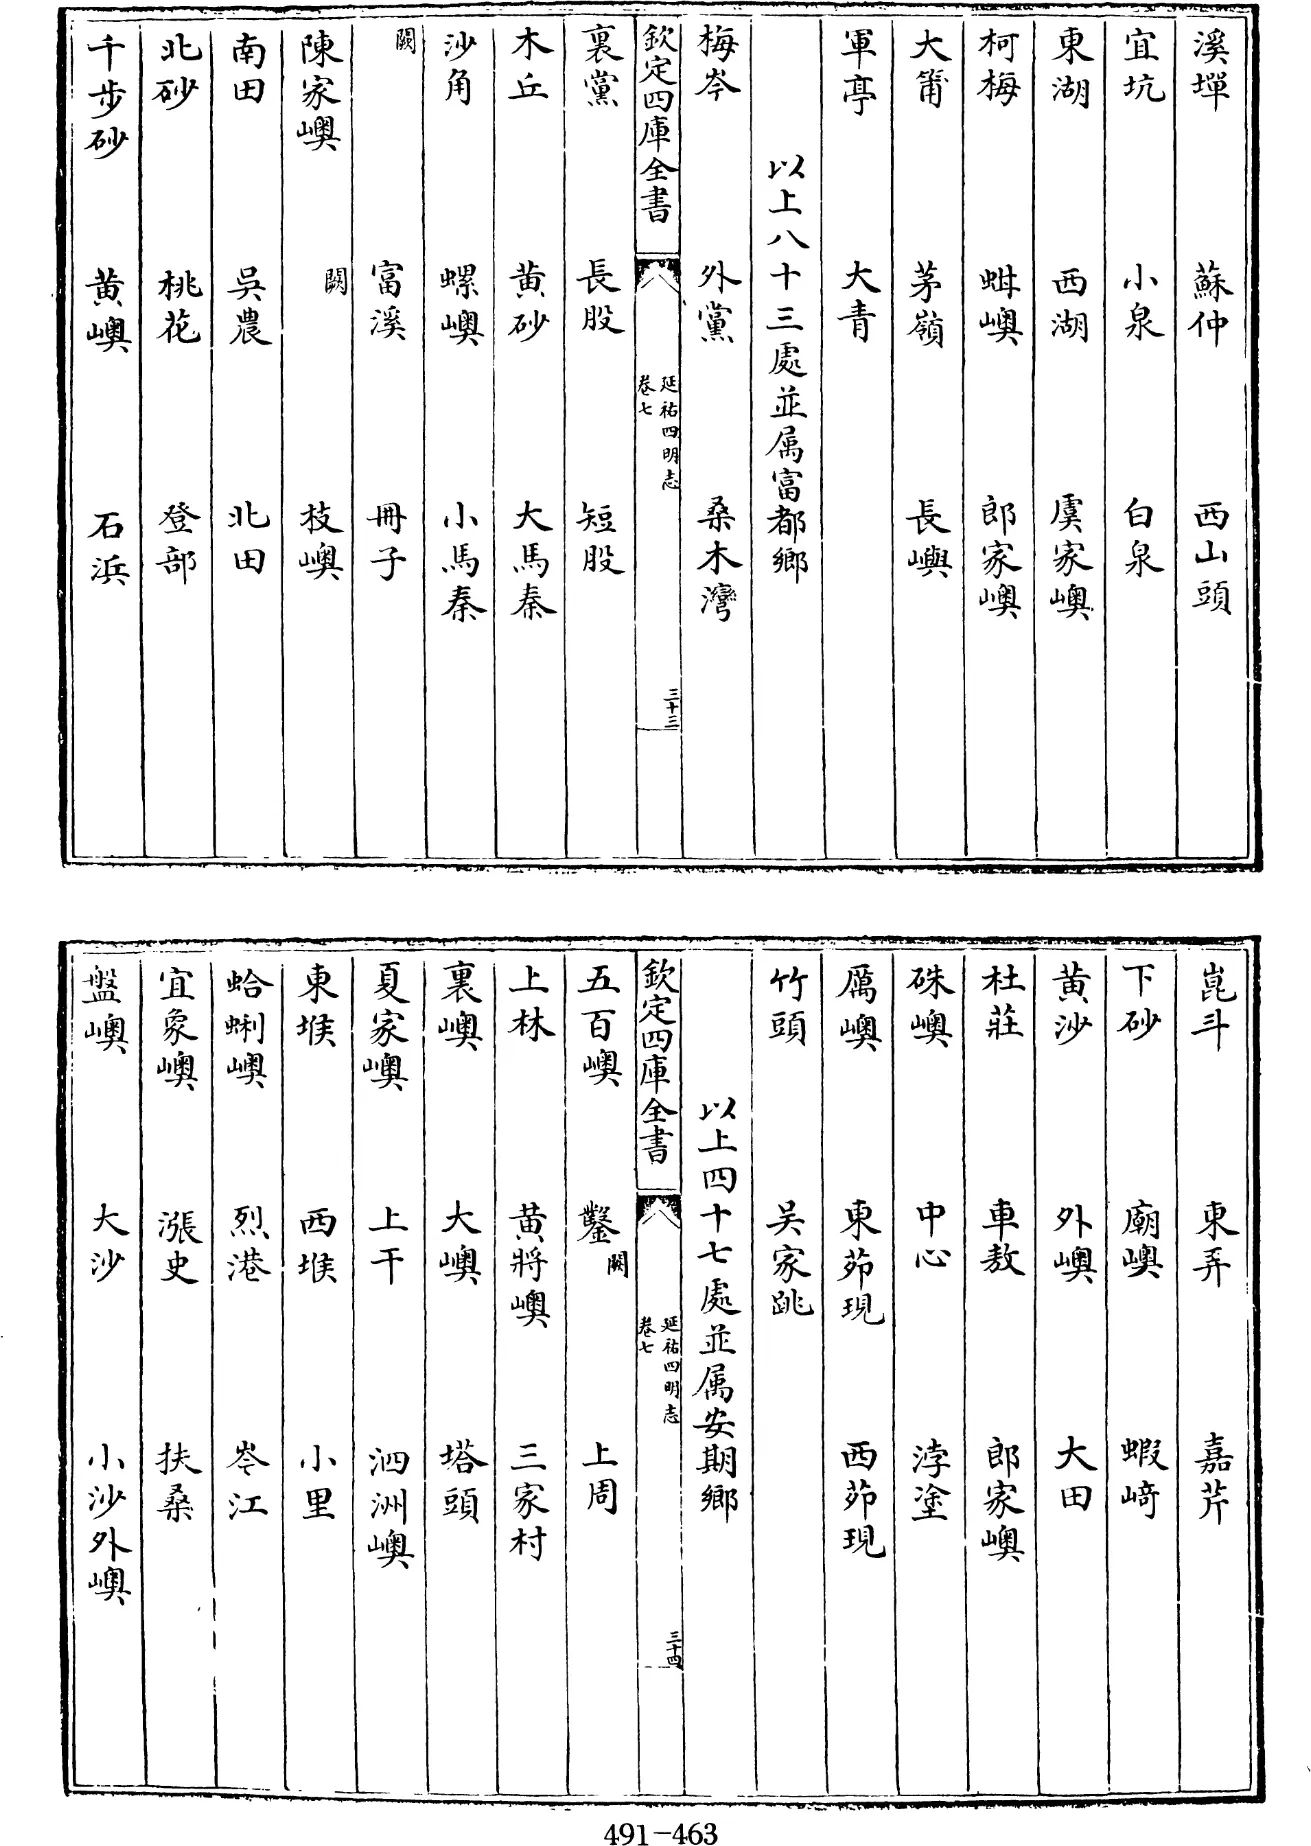 溪墠　蘇仲　西山頭
宜坑　小泉　白泉
東湖　西湖　虞家嶴
柯梅　蚶嶴　郎家嶴
大莆　茅嶺　長嶼
軍亭　大青
以上八十三處並属富都鄉
梅岑　外黨　桑木灣
欽定四庫全書　延祐四明志　卷七　三十三
裏黨　長股　短股
木丘　黄砂　大馬秦
沙角　螺嶴　小馬秦
闕　富溪　冊子
陳家嶴　闕　枝嶴
南田　吳農　北田
北砂　桃花　登部
千步砂　黄嶴　石浜
崑斗　東弄　嘉芹
下砂　廟嶴　蝦﨑
黄沙　外嶴　大田
杜莊　車敖　郎家嶴
硃嶴　中心　浡塗
厲嶴　東茆現　西茆現
竹頭　吴家跳
以上四十七處並属安期鄉
欽定四庫全書　延祐四明志　卷七　三十四
五百嶴　鑿闕　上周
上林　黄將嶴　三家村
裏嶴　大嶴　塔頭
夏家嶴　上干　泗洲嶴
東堠　西堠　小里
蛤蜊嶴　烈港　岑江
宜象嶴　漲史　扶桑
盤嶴　大沙　小沙外嶴
491-463